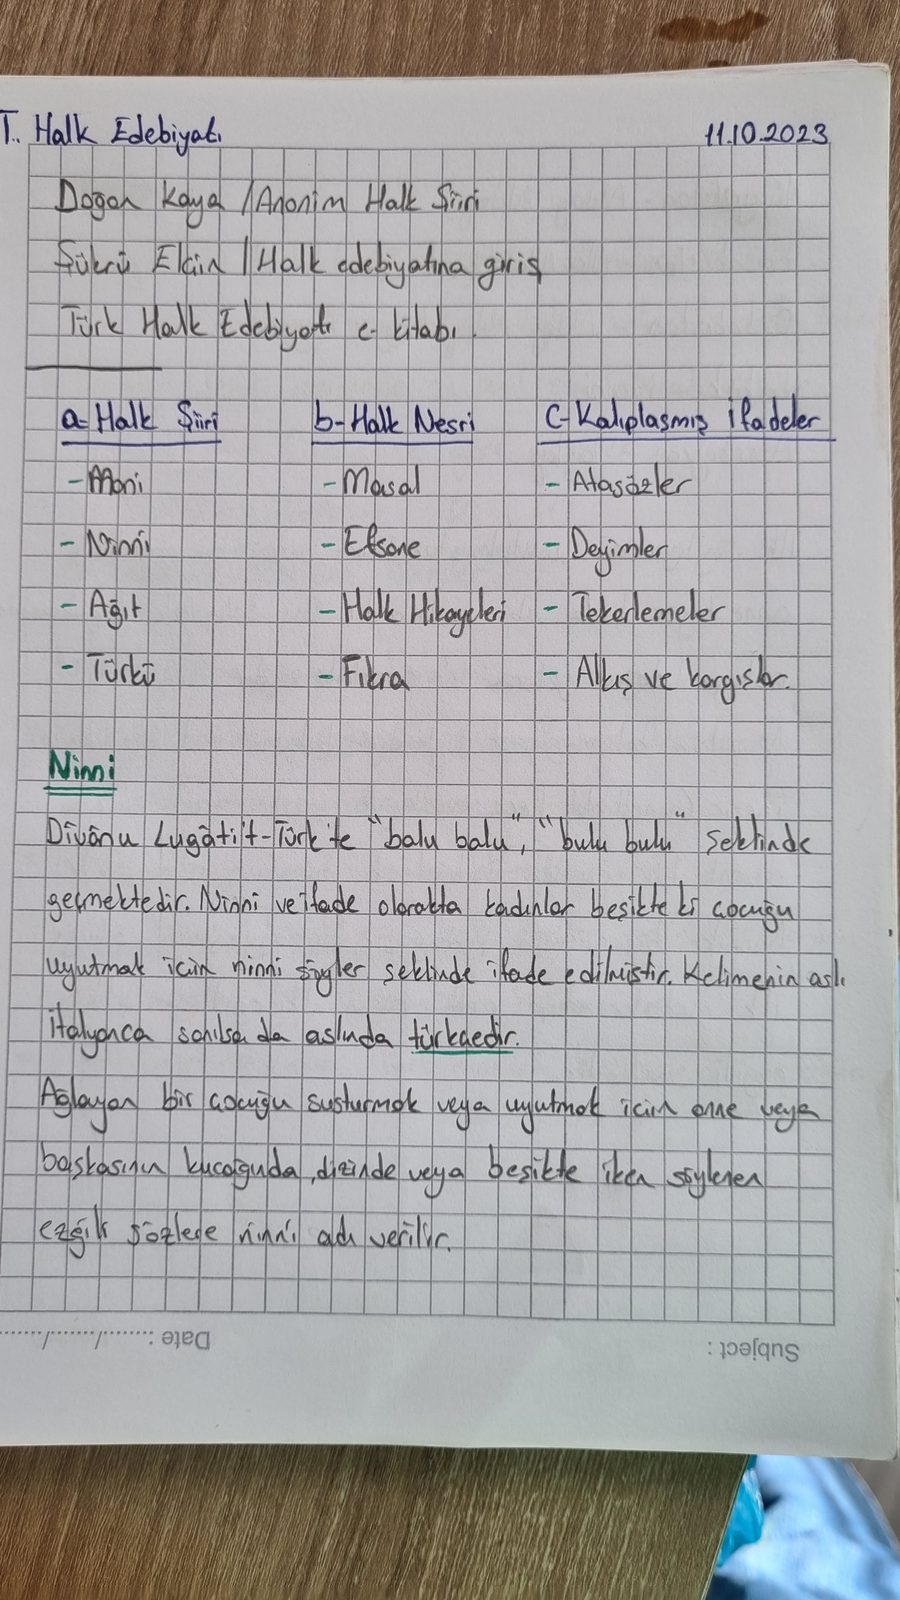 T. Halk Edebiyatı
11.10.2023
Doğan Kaya / Anonim Halk Şiiri
Şükrü Elçin / Halk edebiyatına giriş
Türk Halk Edebiyatı e-kitabı.
a-Halk Şiiri
b-Halk Nesri
c-Kalıplaşmış İfadeler
- Mani
- Masal
- Atasözler
- Ninni
- Efsane
- Deyimler
- Ağıt
- Halk Hikayeleri
- Tekerlemeler
- Türkü
- Fıkra
- Alkış ve kargışlar.
Ninni
Dîvânu Lugâti't-Türk'te "balu balu", "bulu bulu" şeklinde
geçmektedir. Ninni ve ifade olarakta kadınlar beşikte ki çocuğu
uyutmak için ninni söyler şeklinde ifade edilmiştir. Kelimenin aslı
italyanca sanılsa da aslında türkçedir.
Ağlayan bir çocuğu susturmak veya uyutmak için anne veya
başkasının kucağında, dizinde veya beşikte iken söylenen
ezgili sözlere ninni adı verilir.
Date :......./......./.......
Subject :